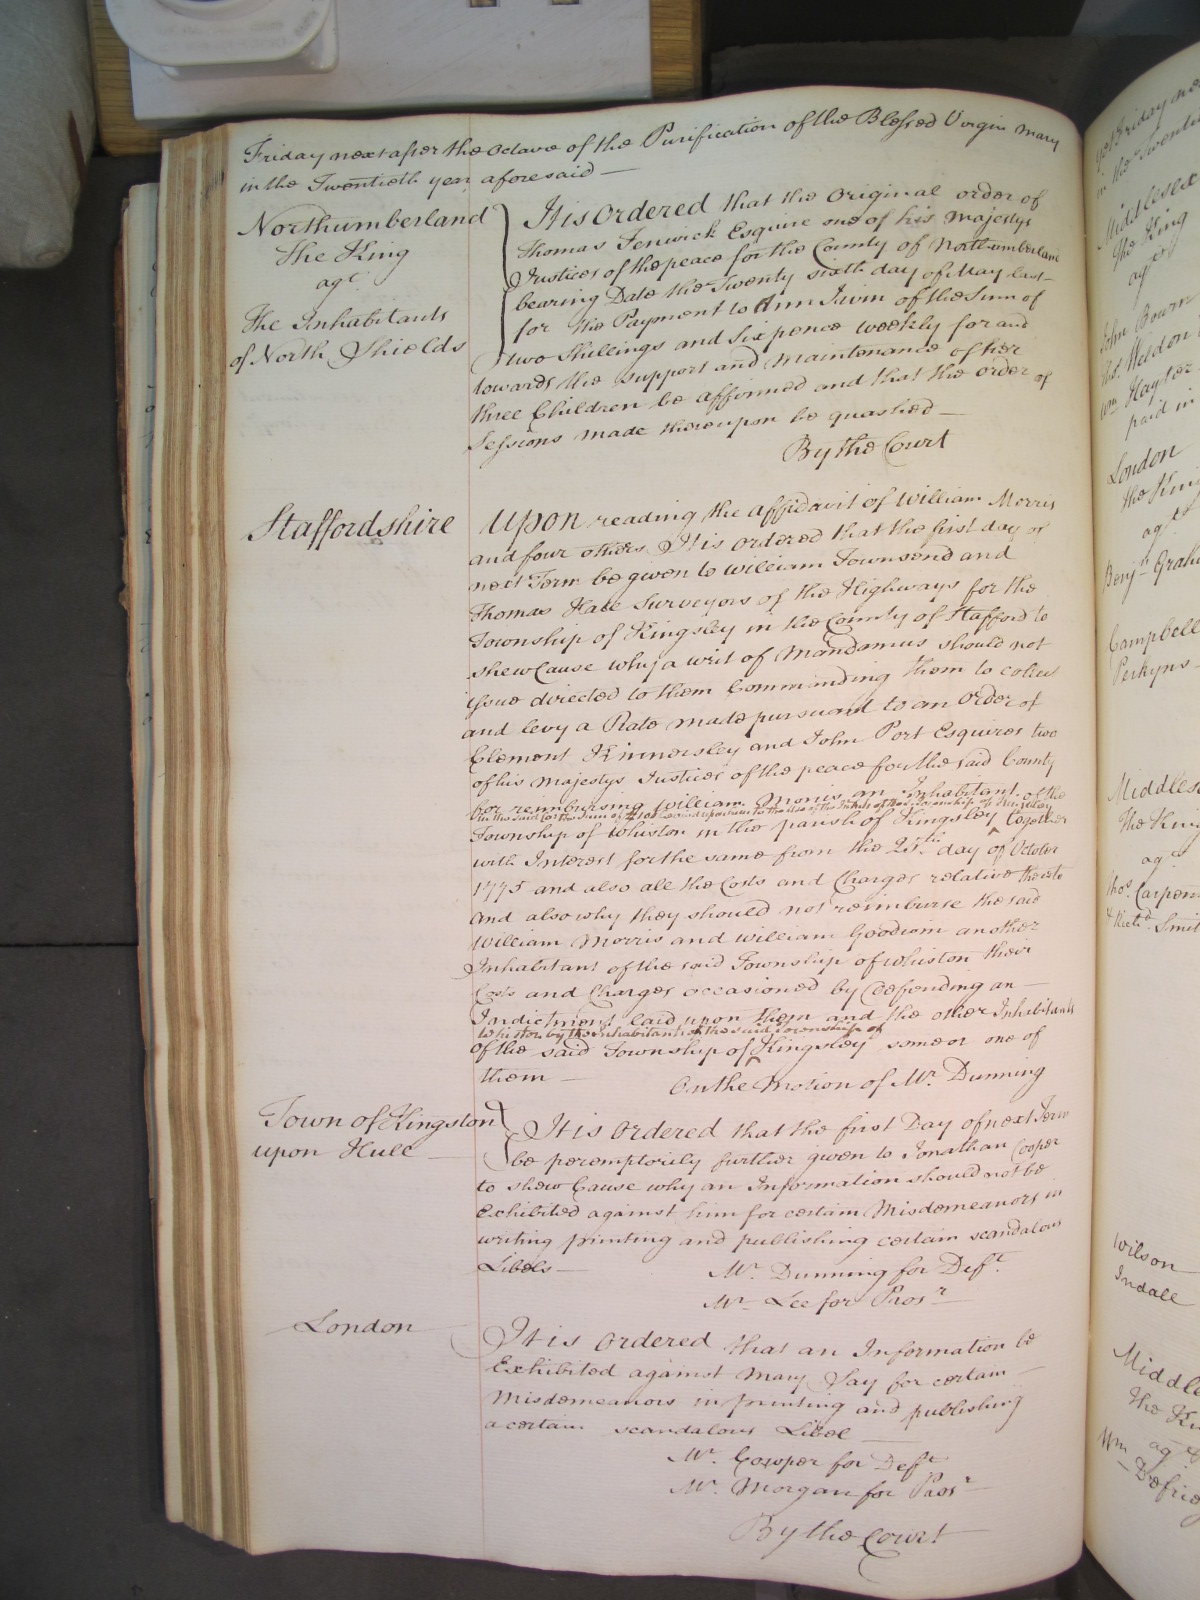 Friday next after the octave of the Purification of the Blessed Virgin Mary
in the Twentieth year aforesaid —
Northumberland
The King
agt
The Inhabitants
of North Shields
It is Ordered that the Original order of
Thomas Fenwick Esquire one of his Majestys
Justices of the peace for the County of Northumberland
bearing Date the Twenty sixth day of May last
for the Payment to Ann Irvin of the Sum of
two Shillings and Sixpence weekly for and
towards the support and Maintenance of her
three Children be affirmed and that the order of
Sessions made thereupon be quashed —
By the Court
Staffordshire
Upon reading the affidavit of William Morris
and four others It is ordered that the first day of
next Term be given to William Townsend and
Thomas Hall Surveyors of the Highways for the
Township of Kingsley in the County of Stafford to
shew Cause why a writ of Mandamus should not
issue directed to them Commanding them to collect
and levy a Rate made pursuant to an Order of
Clement Kinnersley and John Port Esquires two
of his Majestys Justices of the peace for the said County
for reimbursing William Morris an Inhabitant of the
in the said the Sum of laid upon him to the use of the Inhts of the Township of Kingsley
Township of Whiston in the parish of Kingsley together
with Interest for the same from the 25th day of October
1775 and also all the Costs and Charges relative thereto
and also why they should not reimburse the said
William Morris and William Goodwin another
Inhabitant of the said Township of Whiston their
Costs and Charges occasioned by defending an —
Indictment laid upon them and the other Inhabitants
Whiston by the Inhabitants of the said Township of
of the said Township of Kingsley some or one of
them —
On the Motion of Mr. Dunning
Town of Kingston
upon Hull —
It is Ordered that the first Day of next Term
be peremptorily further given to Jonathan Cooper
to shew Cause why an Information should not be
Exhibited against him for certain Misdemeanors in
writing printing and publishing certain scandalous
Libels —
Mr. Dunning for Deft.
Mr. Lee for Prosr
London
It is Ordered that an Information be
Exhibited against Mary Say for certain —
Misdemeanors in printing and publishing
a certain scandalous Libel —
Mr. Cowper for Deft
Mr. Morgan for Prosr
By the Court
yet Friday ne
in the Twentie
Middlesex
The King
agt
John Bourn
Thos. Weldon
Wm Hayter
paid in
London
the King
agt
Benjn Graha
Campbell
Perkyns
Middles
The King
agt
Thos. Carpen
& Richd. Smit
Wilson
Indall
Middle
The Ki
agt
Wm Defrie